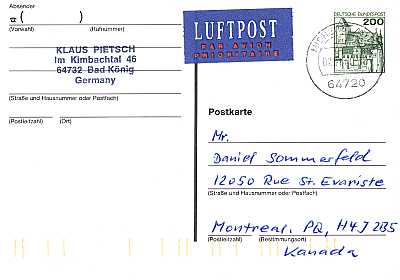 Absender
(          )
(Vorwahl) (Rufnummer)
KLAUS PIETSCH
Im Kimbachtal 46
64732 Bad König
Germany
(Straße und Hausnummer oder Postfach)
(Postleitzahl) (Ort)
LUFTPOST
PAR AVION
PRIORITAIRE
DEUTSCHE BUNDESPOST
200
64720
Postkarte
Mr.
Daniel Sommerfeld
12050 Rue St. Evariste
(Straße und Hausnummer oder Postfach)
Montreal. PQ, H4J 2B5
(Postleitzahl) (Bestimmungsort)
Kanada